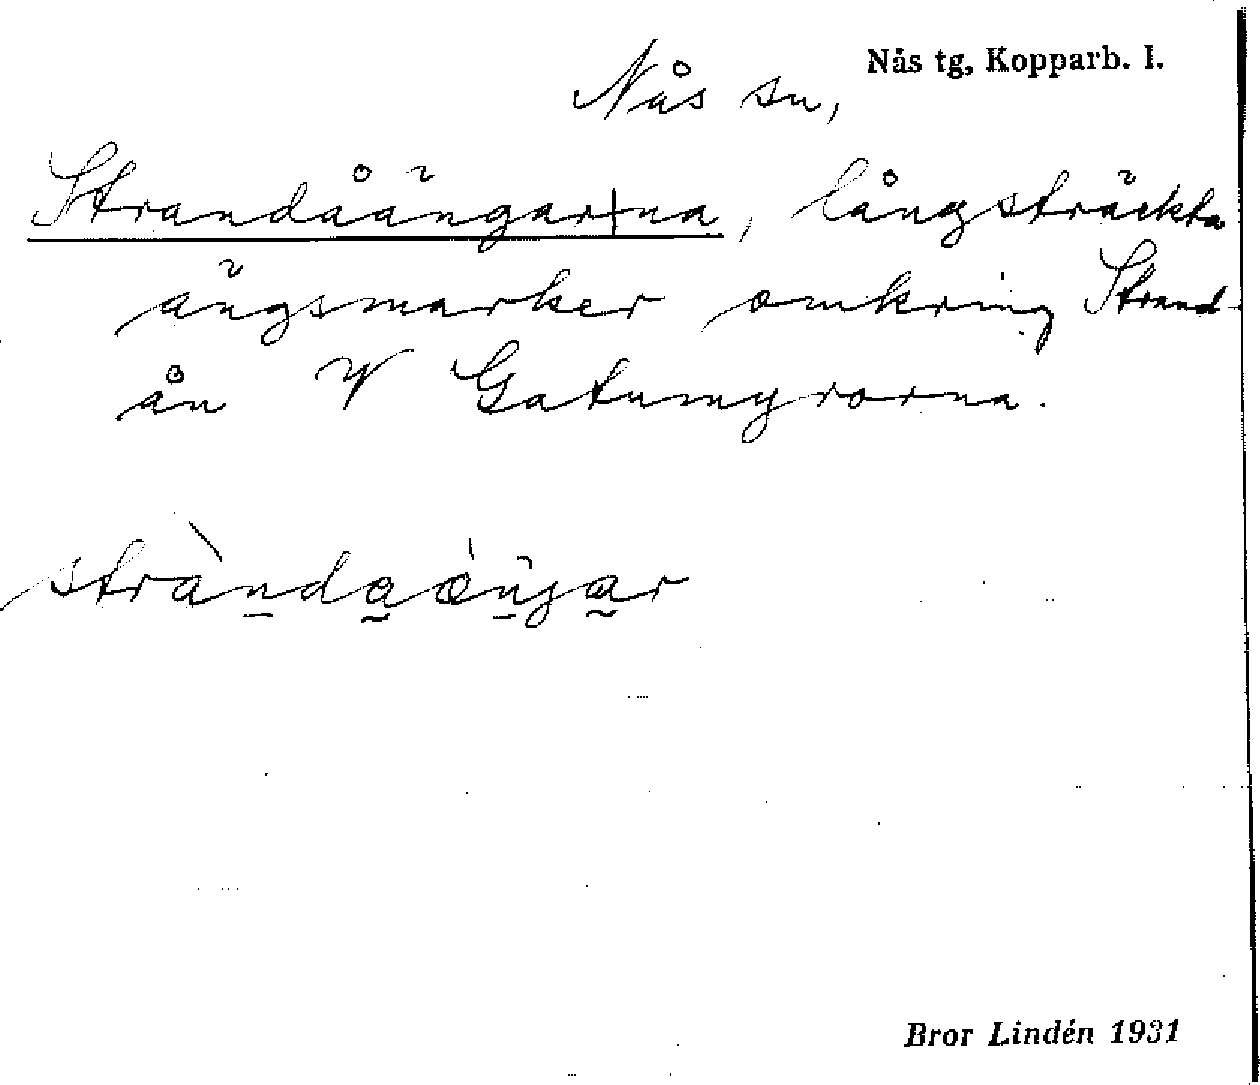 Nås tg, Kopparb. l.
Nås sn,
Strandåängar+na, långsträckta
ängsmarker omkring Strand-
ån V Gatumyrorna.
stràndaæ̀ngar
Bror Lindén 1931